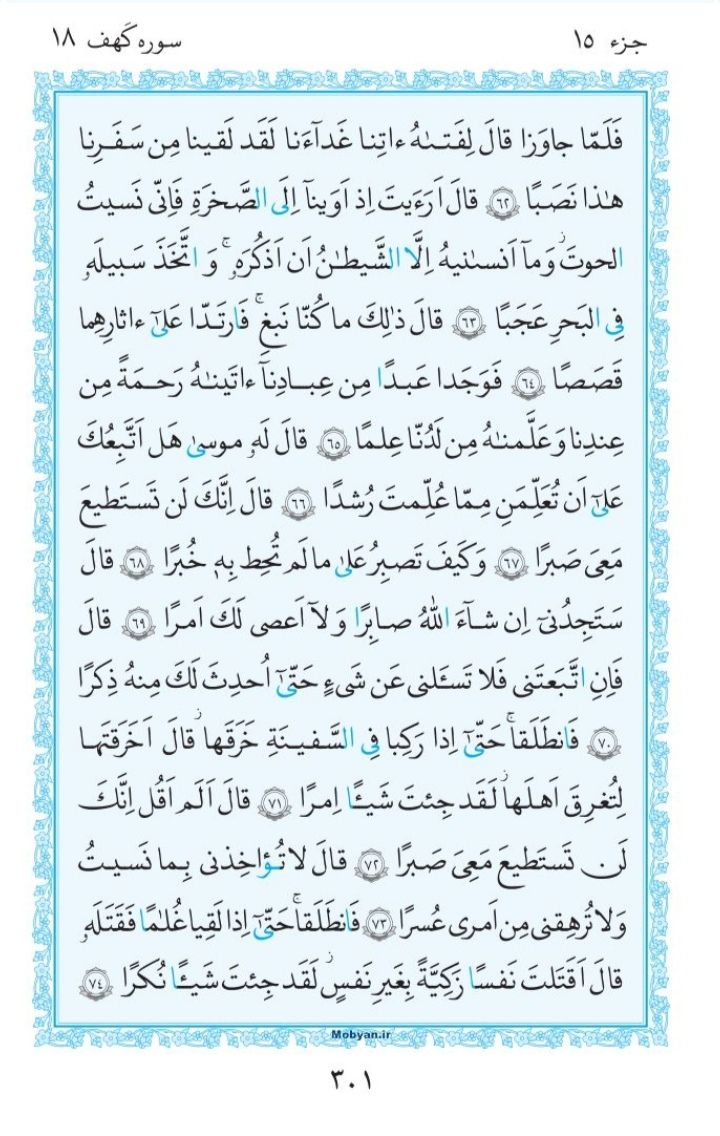 جزء ١٥
سوره كَهف ١٨
فَلَمّا جاوَزا قالَ لِفَتىٰهُ ءاتِنا غَدآءَنا لَقَد لَقينا مِن سَفَرِنا
هٰذا نَصَبًا ﴿٦٢﴾ قالَ اَرَءَيتَ اِذ اَوَينآ اِلَى الصَّخرَةِ فَاِنّى نَسيتُ
الحوتَ ۫ وَمآ اَنسىٰنيهُ اِلَّا الشَّيطٰنُ اَن اَذكُرَهٗ ۚ وَ اتَّخَذَ سَبيلَهٗ
فِى البَحرِ عَجَبًا ﴿٦٣﴾ قالَ ذٰلِكَ ما كُنّا نَبغِ ۚ فَارتَدّا عَلىٰٓ ءاثارِهِما
قَصَصًا ﴿٦٤﴾ فَوَجَدا عَبدًا مِن عِبادِنآ ءاتَينٰهُ رَحمَةً مِن
عِندِنا وَ عَلَّمنٰهُ مِن لَدُنّا عِلمًا ﴿٦٥﴾ قالَ لَهٗ موسىٰ هَل اَتَّبِعُكَ
عَلىٰٓ اَن تُعَلِّمَنِ مِمّا عُلِّمتَ رُشدًا ﴿٦٦﴾ قالَ اِنَّكَ لَن تَستَطيعَ
مَعِىَ صَبرًا ﴿٦٧﴾ وَ كَيفَ تَصبِرُ عَلىٰ ما لَم تُحِط بِهٖ خُبرًا ﴿٦٨﴾ قالَ
سَتَجِدُنىٓ اِن شآءَ اللّٰهُ صابِرًا وَ لآ اَعصى لَكَ اَمرًا ﴿٦٩﴾ قالَ
فَاِنِ اتَّبَعتَنى فَلا تَسـَٔلنى عَن شَىءٍ حَتّىٰٓ اُحدِثَ لَكَ مِنهُ ذِكرًا
﴿٧٠﴾ فَانطَلَقا ۚ حَتّىٰٓ اِذا رَكِبا فِى السَّفينَةِ خَرَقَها ۫ قالَ اَخَرَقتَها
لِتُغرِقَ اَهلَها ۫ لَقَد جِئتَ شَيـًٔا اِمرًا ﴿٧١﴾ قالَ اَلَم اَقُل اِنَّكَ
لَن تَستَطيعَ مَعِىَ صَبرًا ﴿٧٢﴾ قالَ لا تُؤاخِذنى بِما نَسيتُ
وَ لا تُرهِقنى مِن اَمرى عُسرًا ﴿٧٣﴾ فَانطَلَقا ۚ حَتّىٰٓ اِذا لَقِيا غُلٰمًا فَقَتَلَهٗ
قالَ اَقَتَلتَ نَفسًا زَكِيَّةً بِغَيرِ نَفسٍ ۫ لَقَد جِئتَ شَيـًٔا نُكرًا ﴿٧٤﴾
Mobyan.ir
٣٠١